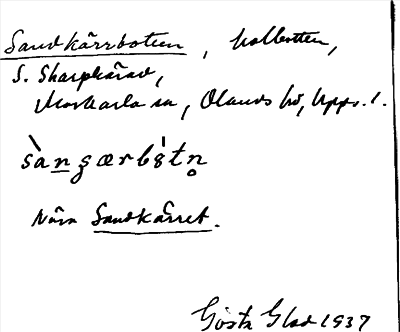 Sandkärrbotten, holbotten,
S. Skarpkärad,
Morkarla sn, Olands hd, Upps. l.
sàngærbòtn
Nära Sandkärret.
Gösta Glad 1937